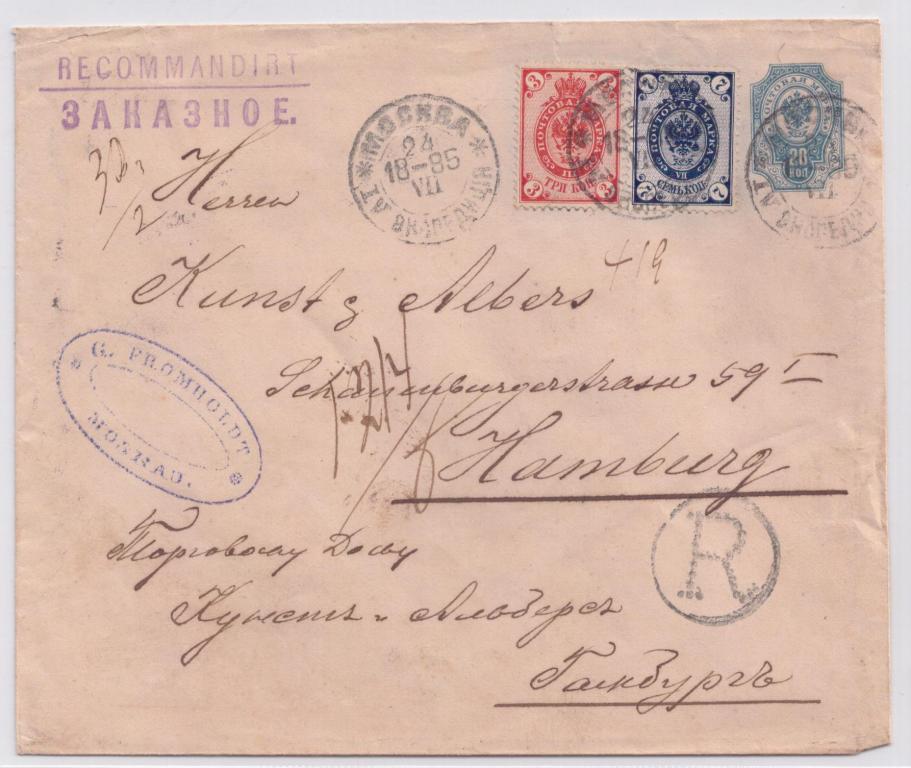 RECOMMANDIRT
ЗАКАЗНОЕ.
МОСКВА
24
18-85
VII
3
3
ПОЧТОВАЯ МАРКА
III
ТРИ КОП.
3
3
7
7
ПОЧТОВАЯ МАРКА
VII
СЕМЬ КОП.
7
7
ПОЧТОВАЯ МАРКА
20
КОП
Herren
419
Kunst & Albers
Schauenburgerstrasse 59 I
Hamburg
G. FROMHOLDT
MOSKAU.
R
Торговому Дому
Кунстъ и Альберсъ
Гамбургъ